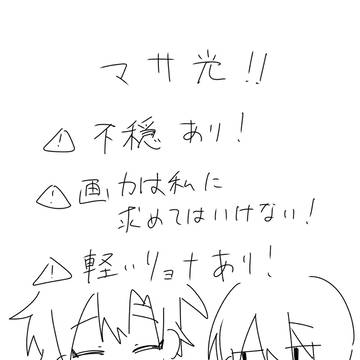 マサ光!!
⚠不穏あり!
⚠画力は私に
求めてはいけない!
⚠軽いリョナあり!